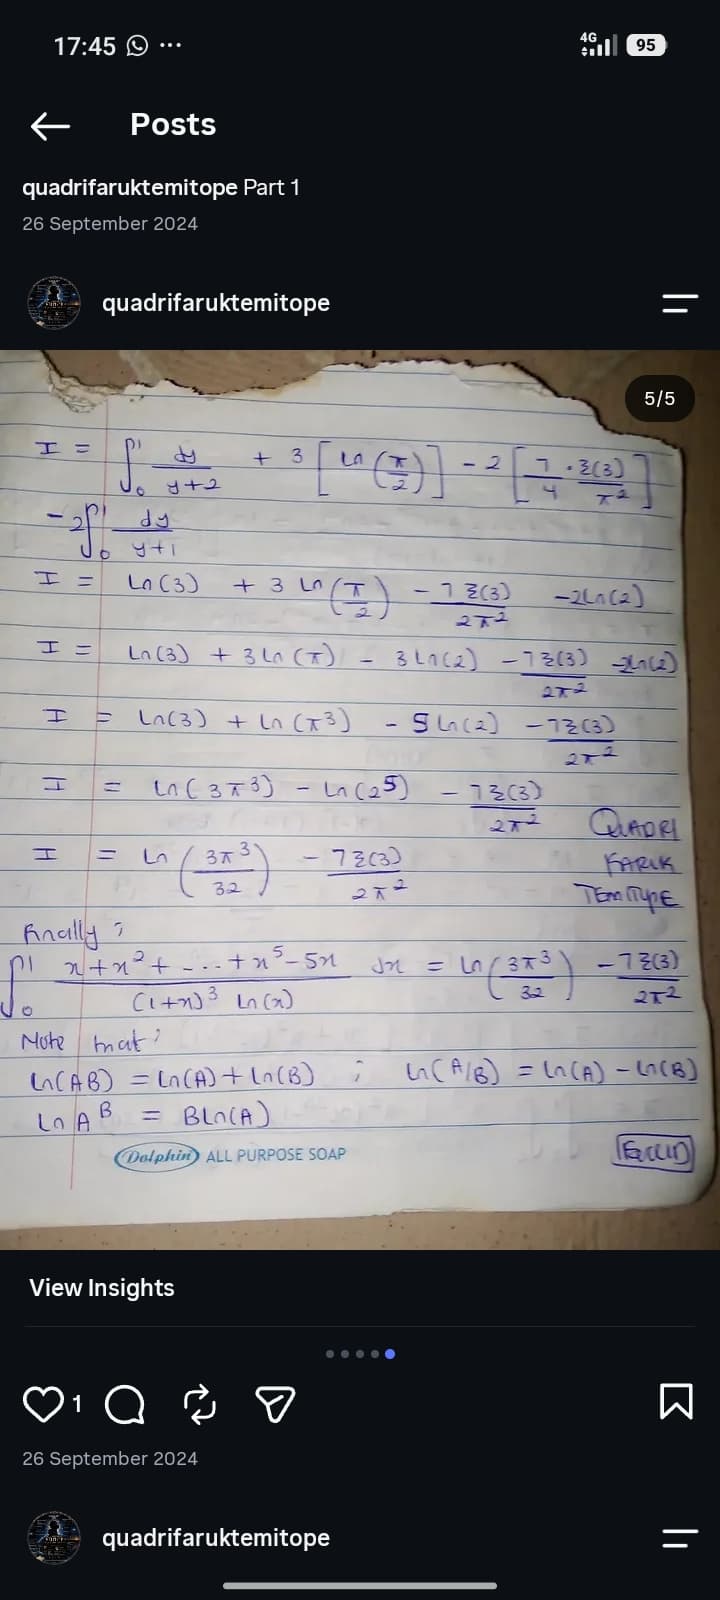 17:45 ...
4G 95
Posts
quadrifaruktemitope Part 1
26 September 2024
quadrifaruktemitope
5/5
I = ∫₀¹ dy/(y+2) + 3 [ln(π/2)] - 2 [7/4 · ξ(3)/π²]
-2∫₀¹ dy/(y+1)
I = ln(3) + 3 ln(π/2) - 7ξ(3)/2π² -2ln(2)
I = ln(3) + 3ln(π) - 3ln(2) - 7ξ(3)/2π² -2ln(2)
I = ln(3) + ln(π³) - 5ln(2) - 7ξ(3)/2π²
I = ln(3π³) - ln(2⁵) - 7ξ(3)/2π²
QUADRI
I = ln(3π³/32) - 7ξ(3)/2π²
FARUK
TEMITYPE
Finally;
∫₀¹ (x+x²+ - . . . +x⁵-5x)/((1+x)³ ln(x)) dx = ln(3π³/32) - 7ξ(3)/2π²
Note that:
ln(AB) = ln(A)+ln(B) ; ln(A/B) = ln(A) - ln(B)
ln Aᴮ = Bln(A)
EUCLID
Dolphin ALL PURPOSE SOAP
View Insights
1
26 September 2024
quadrifaruktemitope